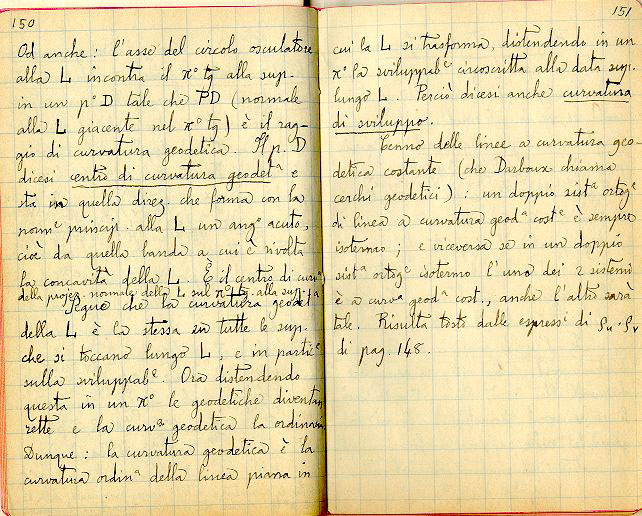 150
Od anche: l'asse del circolo osculatore
alla L incontra il π° tg alla sup.
in un p° D tale che PD (normale
alla L giacente nel π° tg) è il rag-
gio di curvatura geodetica. Il p. D
dicesi centro di curvatura geodetª e
sta in quella direz. che forma con la
normᵉ princip. alla L un angº acuto,
cioè da quella banda a cui è rivolta
la concavità della L. È il centro di curvª
della projez. normale della L sul π° tg. alla sup.
Segue che la curvatura geodetª
della L è la stessa su tutte le sup.
che si toccano lungo L, e in particᵉ
sulla sviluppabᵉ. Ora distendendo
questa in un π° le geodetiche diventan
rette e la curvª geodetica la ordinaria.
Dunque: la curvatura geodetica è la
curvatura ordinª della linea piana in
151
cui la L si trasforma, distendendo in un
π° la sviluppabᵉ circoscritta alla data sup.
lungo L. Perciò dicesi anche curvatura
di sviluppo.
Cenno delle linee a curvatura geo-
detica costante (che Darboux chiama
cerchi geodetici): un doppio sistª ortogᵉ
di linee a curvatura geodª costᵉ è sempre
isotermo; e viceversa se in un doppio
sistª ortogᵉ isotermo l'uno dei 2 sistemi
è a curvª geodª cost., anche l'altro sarà
tale. Risulta tosto dalle espressⁱ di ρᵤ, ρᵥ
di pag. 148.